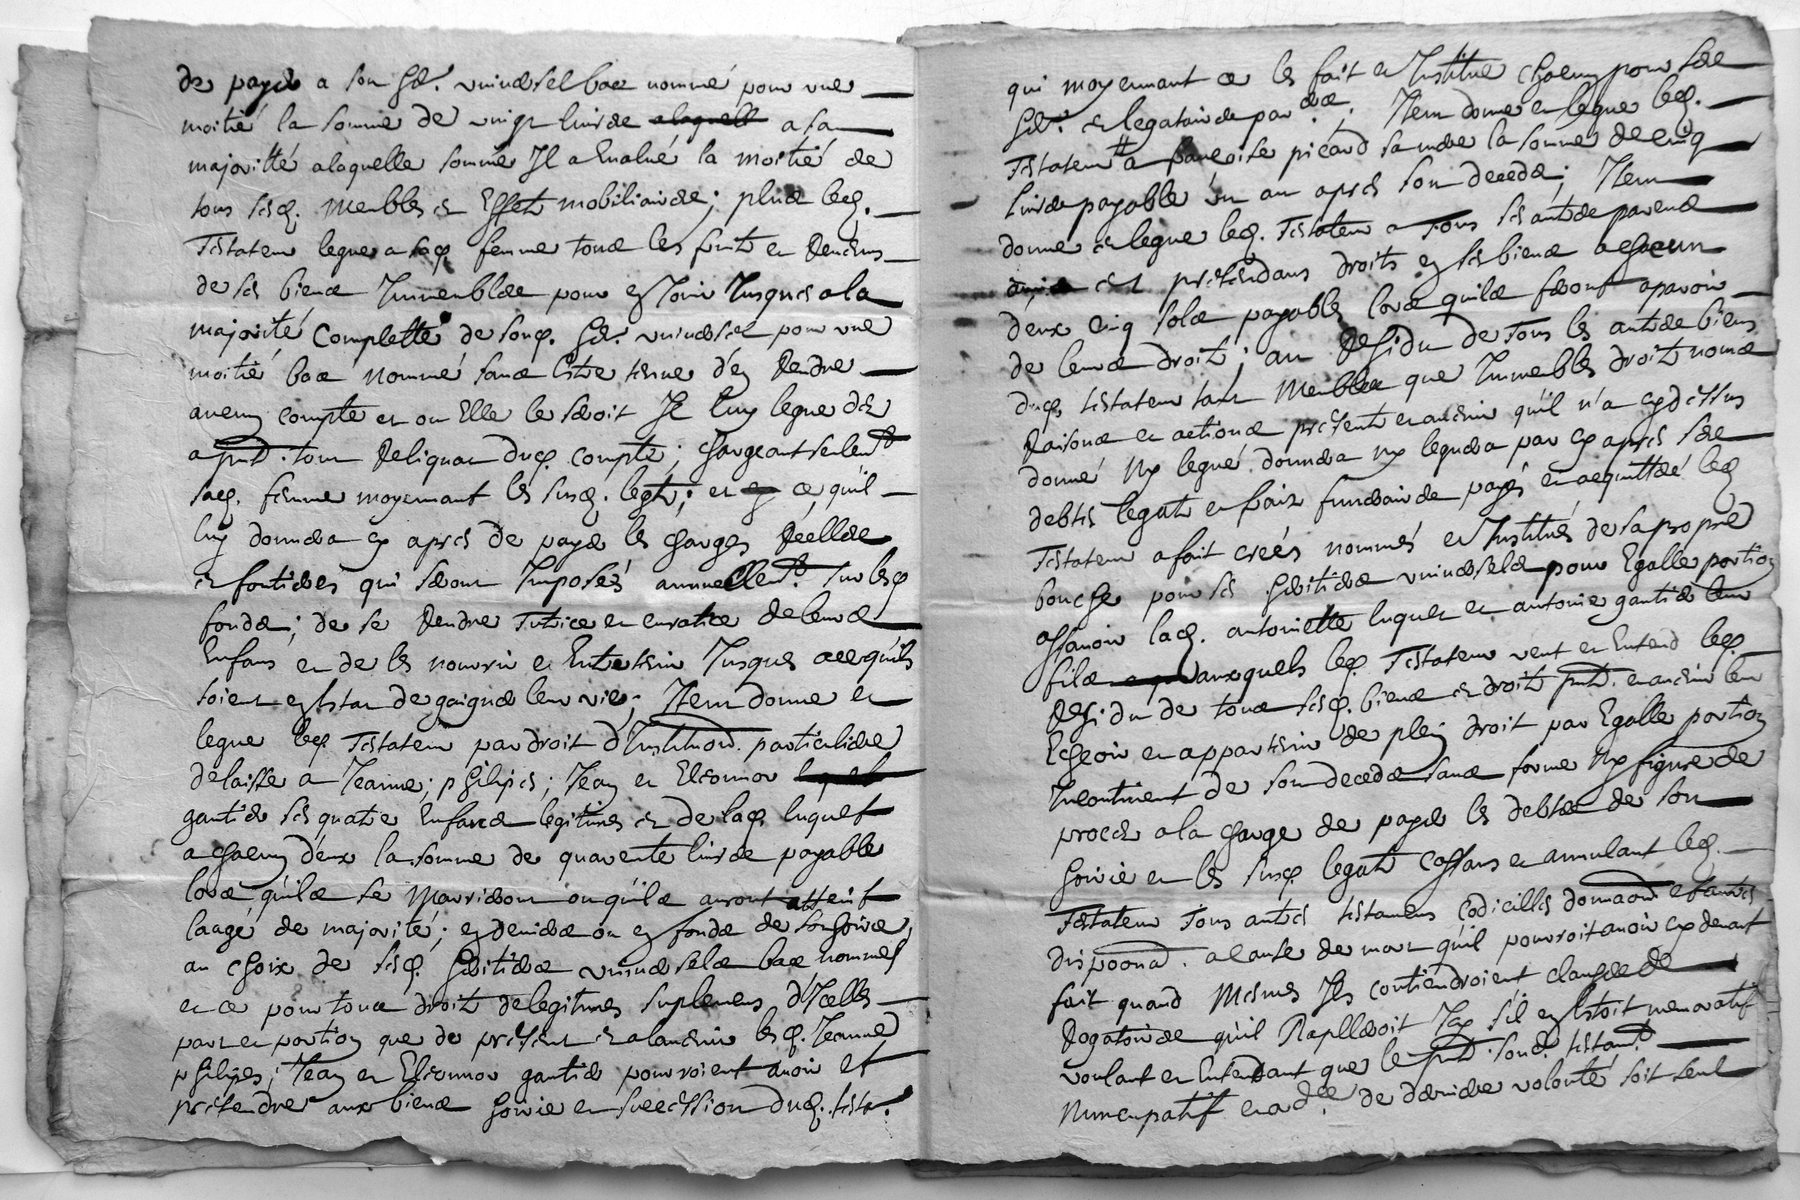 de payer a son her. universel bas nommé pour une
moitié la somme de vingt livres a sa
majoritté a laquelle somme Il a Evalué la moitié de
tous sesd. meubles et Effets mobiliaires; plus led.
Testateur legue a sad. femme tous les fruits et Revenus
de ses biens Immeubles pour en Jouir Jusques a la
majorité Complette de sond. her. universel pour une
moitié bas nommé sans Estre tenue d'en Rendre
aucun compte et ou Elle le seroit Il luy legue des
a pnt. tout Reliquat dud. compte; chargeant seulemt
sad. femme moyennant les susd. legts; et ce qu'il
luy donnera cy apres de payer les charges Réelles
et fortuites qui seront Imposés annuellemt. sur lesd
fonds; de se Rendre Tutrice et curatrice de leurs
Enfans et de les nourrir et Entretenir Jusques a ce qu'ils
soient en Estat de gaigner leur vie; Item donne et
legue led. Testateur par droit d'Institution particuliere
delaisse a Jeanne; philipes; Jean et Eleonnor
gautier ses quatre Enfans legitimes et de lad luquet
a chacun d'eux la somme de quarente livres payable
lors qu'ils se Mariront ou qu'ils auront atteint
laagé de majorité; en deniers ou en fonds de son hoirie,
au choix de sesd. heritiers universels bas nommés
et ce pour tous droits de legitimes suplemens d'Icelles
part et portion que de present et a l'advenir lesd. Jeanne
philipes; Jean et Eleonnor gautier pourroient avoir et
pretendre aux biens hoirie et succession dud. testr.
qui moyennant ce les fait et Institue chacun pour ses
her. et legataires par.res; Item donne et legue led.
Testateur a françoise picard sa mere la somme de cinq
livres payable un an apres son decedé; Item
donne et legue led. Testateur a Tous ses autres parens
et pretendans droits en ses biens a chacun
d'eux cinq sols payable lors qu'ils feront aparoir
de leurs droits; au Residu de Tous les autres biens
dud. testateur tant Meubles que Immeubles droits noms
Raisons et actions presents et advenir qu'il n'a cy dessus
donné Ny legué donnera ny leguera par cy apres ses
debtes legats et frais funeraires payés et acquittés led
Testateur a fait creés nommés et Institués de sa propre
bouche pour ses heritiers universels pour Egalle portion
assavoir lad. antoinette luquet et antoine gautier leur
fils auxquels led. Testateur veut et Entend led.
Residu de tous sesd. biens et droits pnts. et advenir leur
Echeoir et appartenir de plein droit par Egalle portion
Incontinent de son decedé sans forme Ny figure de
proces a la charge de payer les debtes de son
hoirie et les susd. legats Cassans et annulant led.
Testateur Tous autres testamens Codicilles donnaons et autres
dispoons. a cause de mort qu'il pourroit avoir cy devant
fait quand Mesmes Ils contiendroient clauses de
Rogatoires qu'il Raplleroit Icy s'il en Estoit memoratif
voulant et Entendant que le pnt. sond. testamt.
Nuncupatif et a d.re de derniere volonté soit seul